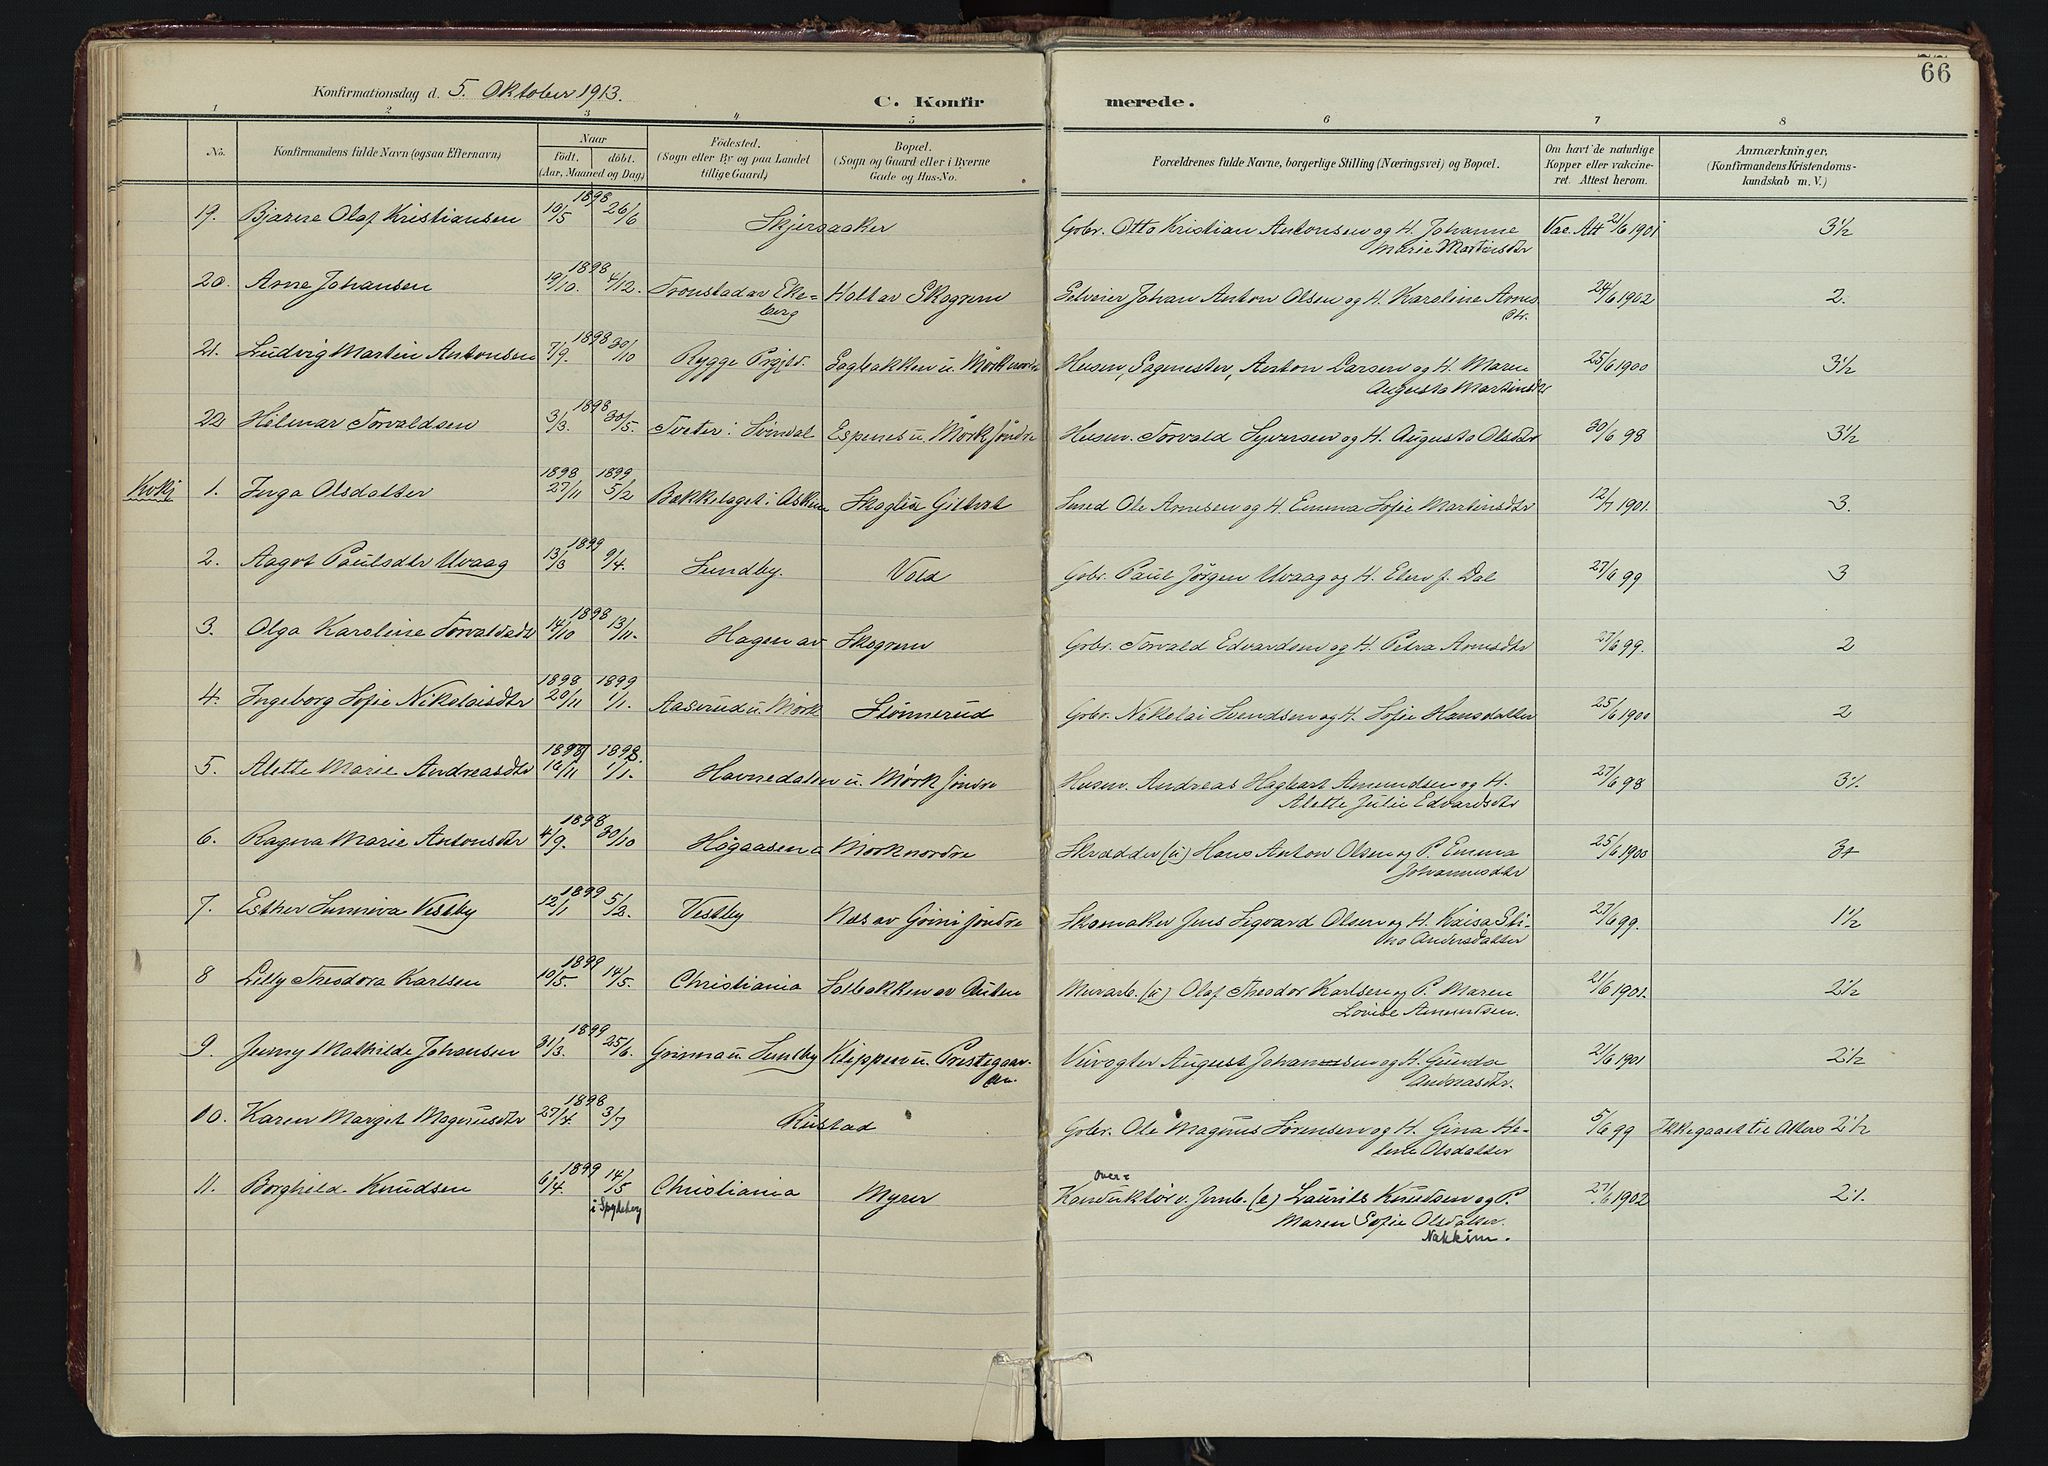 66
Konfirmationsdag d. 5. Oktober 1913.
C. Konfirmerede.
1 2 3 4 5 6 7 8
No. Konfirmandens fulde Navn (ogsaa Efternavn) Naar födt. döbt. (Aar, Maaned og Dag) Födested. (Sogn eller By og paa Landet tillige Gaard) Bopæl. (Sogn og Gaard eller i Byerne Gade og Hus-No. Forældrenes fulde Navne, borgerlige Stilling (Næringsvei) og Bopæl. Om havt de naturlige Kopper eller vakcineret. Attest herom. Anmærkninger, (Konfirmandens Kristendomskundskab m. V.)
19. Bjarne Olaf Kristiansen 1898 10/5 26/6 Skjeraaker Gbr. Otto Kristian Antonsen og H. Johanne Marie Martinsdtr Vac. Att 21/6 1901 3½
20. Arne Johansen 1898 19/10. 4/12. Tronstad av Ekeberg Holt av Skogrem Selveier Johan Anton Olsen og H. Karoline Arnesdtr. 24/6 1902 2.
21. Ludvig Martin Antonsen 1898 7/9. 30/10 Rygge Prgjld. Sagbakken u. Mørk nordre Husm, Sagmester, Anton Larsen og H. Maren Augusta Martinsdtr 25/6 1900 3½
22 Hilmar Torvaldsen 1898 3/3. 30/5. Tveter i Svindal Espenes u. Mørk søndre Husm. Torvald Syversen og H. Augusta Olsdtr 30/6 98 3½
Kvkj 1. Inga Olsdatter 1898 27/11 1899 5/2 Bakkelaget i Askim Skoglu Smed Ole Arnesen og H. Emma Sofie Martinsdtr 12/7 1901. 3.
2. Aagot Paulsdtr Uvaag 1899 13/3 9/4. Sundby. Vold Gbr. Paul Jørgen Uvaag og H. Elen f. Dal 27/6 99 3
3. Olga Karoline Torvaldsdtr 1898 14/10 13/11. Hagen av Skogrem Gbr. Torvald Edvardsen og H. Petra Arnesdtr 27/6 99. 2
4. Ingeborg Sofie Nikolaisdtr 1898 20/11 1899 1/1. Aaserud u. Mørk Stømnerud Gbr. Nikolai Svendsen og H. Sofie Hansdatter 25/6 1900 2
5. Alette Marie Andreasdtr 16/11 1898. 1/1. Havnedalen u. Mørk søndre Husm. Andreas Hagbart Amundsen og H. Alette Julie Edvardsdtr 27/6 98
6. Ragna Marie Antonsdtr 1898 4/9. 30/10 Høgaasen u Mørk nordre Skrædder (u) Hans Anton Olsen og P. Emma Johannesdtr 25/6 1900
7. Esther Sunniva Vestby 1899 12/1 5/2. Vestby Næs av Grini søndre Skomaker Jens Segvard Olsen og H. Kaisa Andersdatter 27/6 99. 1½
8 Lilly Theodora Karlsen 10/5. 14/5. Christiania Solbakken av Auten Murarb. (u) Olaf Theodor Karlsen og P. Maren Lovise Amundsen. 21/6 1901. 2½
9. Jenny Mathilde Johansen 1899 31/3. 25/6. Grinna u. Sundby Klippen u. Prestegaarden. Veivogter August Johansen og H. Gunda Andreasdtr. 21/6 1901 2½
10. Karen Marget Magnusdtr 1898 27/4. 3/7 Rustad Gbr. Ole Magnus Sørensen og H. Gina Helene Olsdatter 5/6 99 Ikke gaaet til Alters 2½
11. Borghild Knudsen 1899 6/4. 14/5 i Spydeberg Christiania Myrer over= Konduktør v. Jernb. (e) Laurits Knudsen og P. Maren Sofie Olsdatter. Nakkim. 27/6 1902